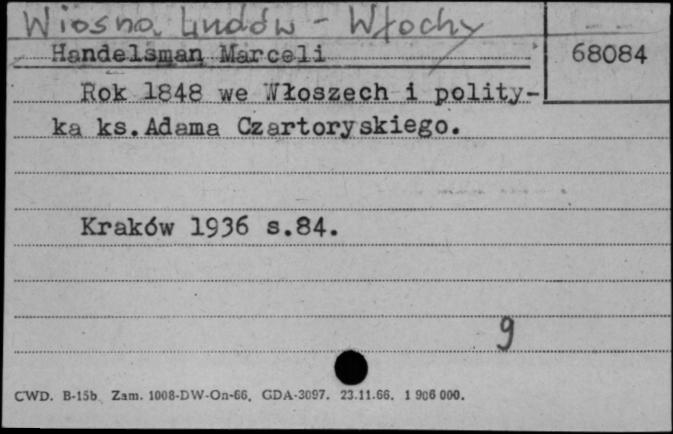 Wiosna Ludów - Włochy
Handelsman Marceli
68084
Rok 1848 we Włoszech i polity-
ka ks. Adama Czartoryskiego.
Kraków 1936 s.84.
9
CWD. B-15b Zam. 1008-DW-On-66. GDA-3097. 23.11.66. 1 906 000.